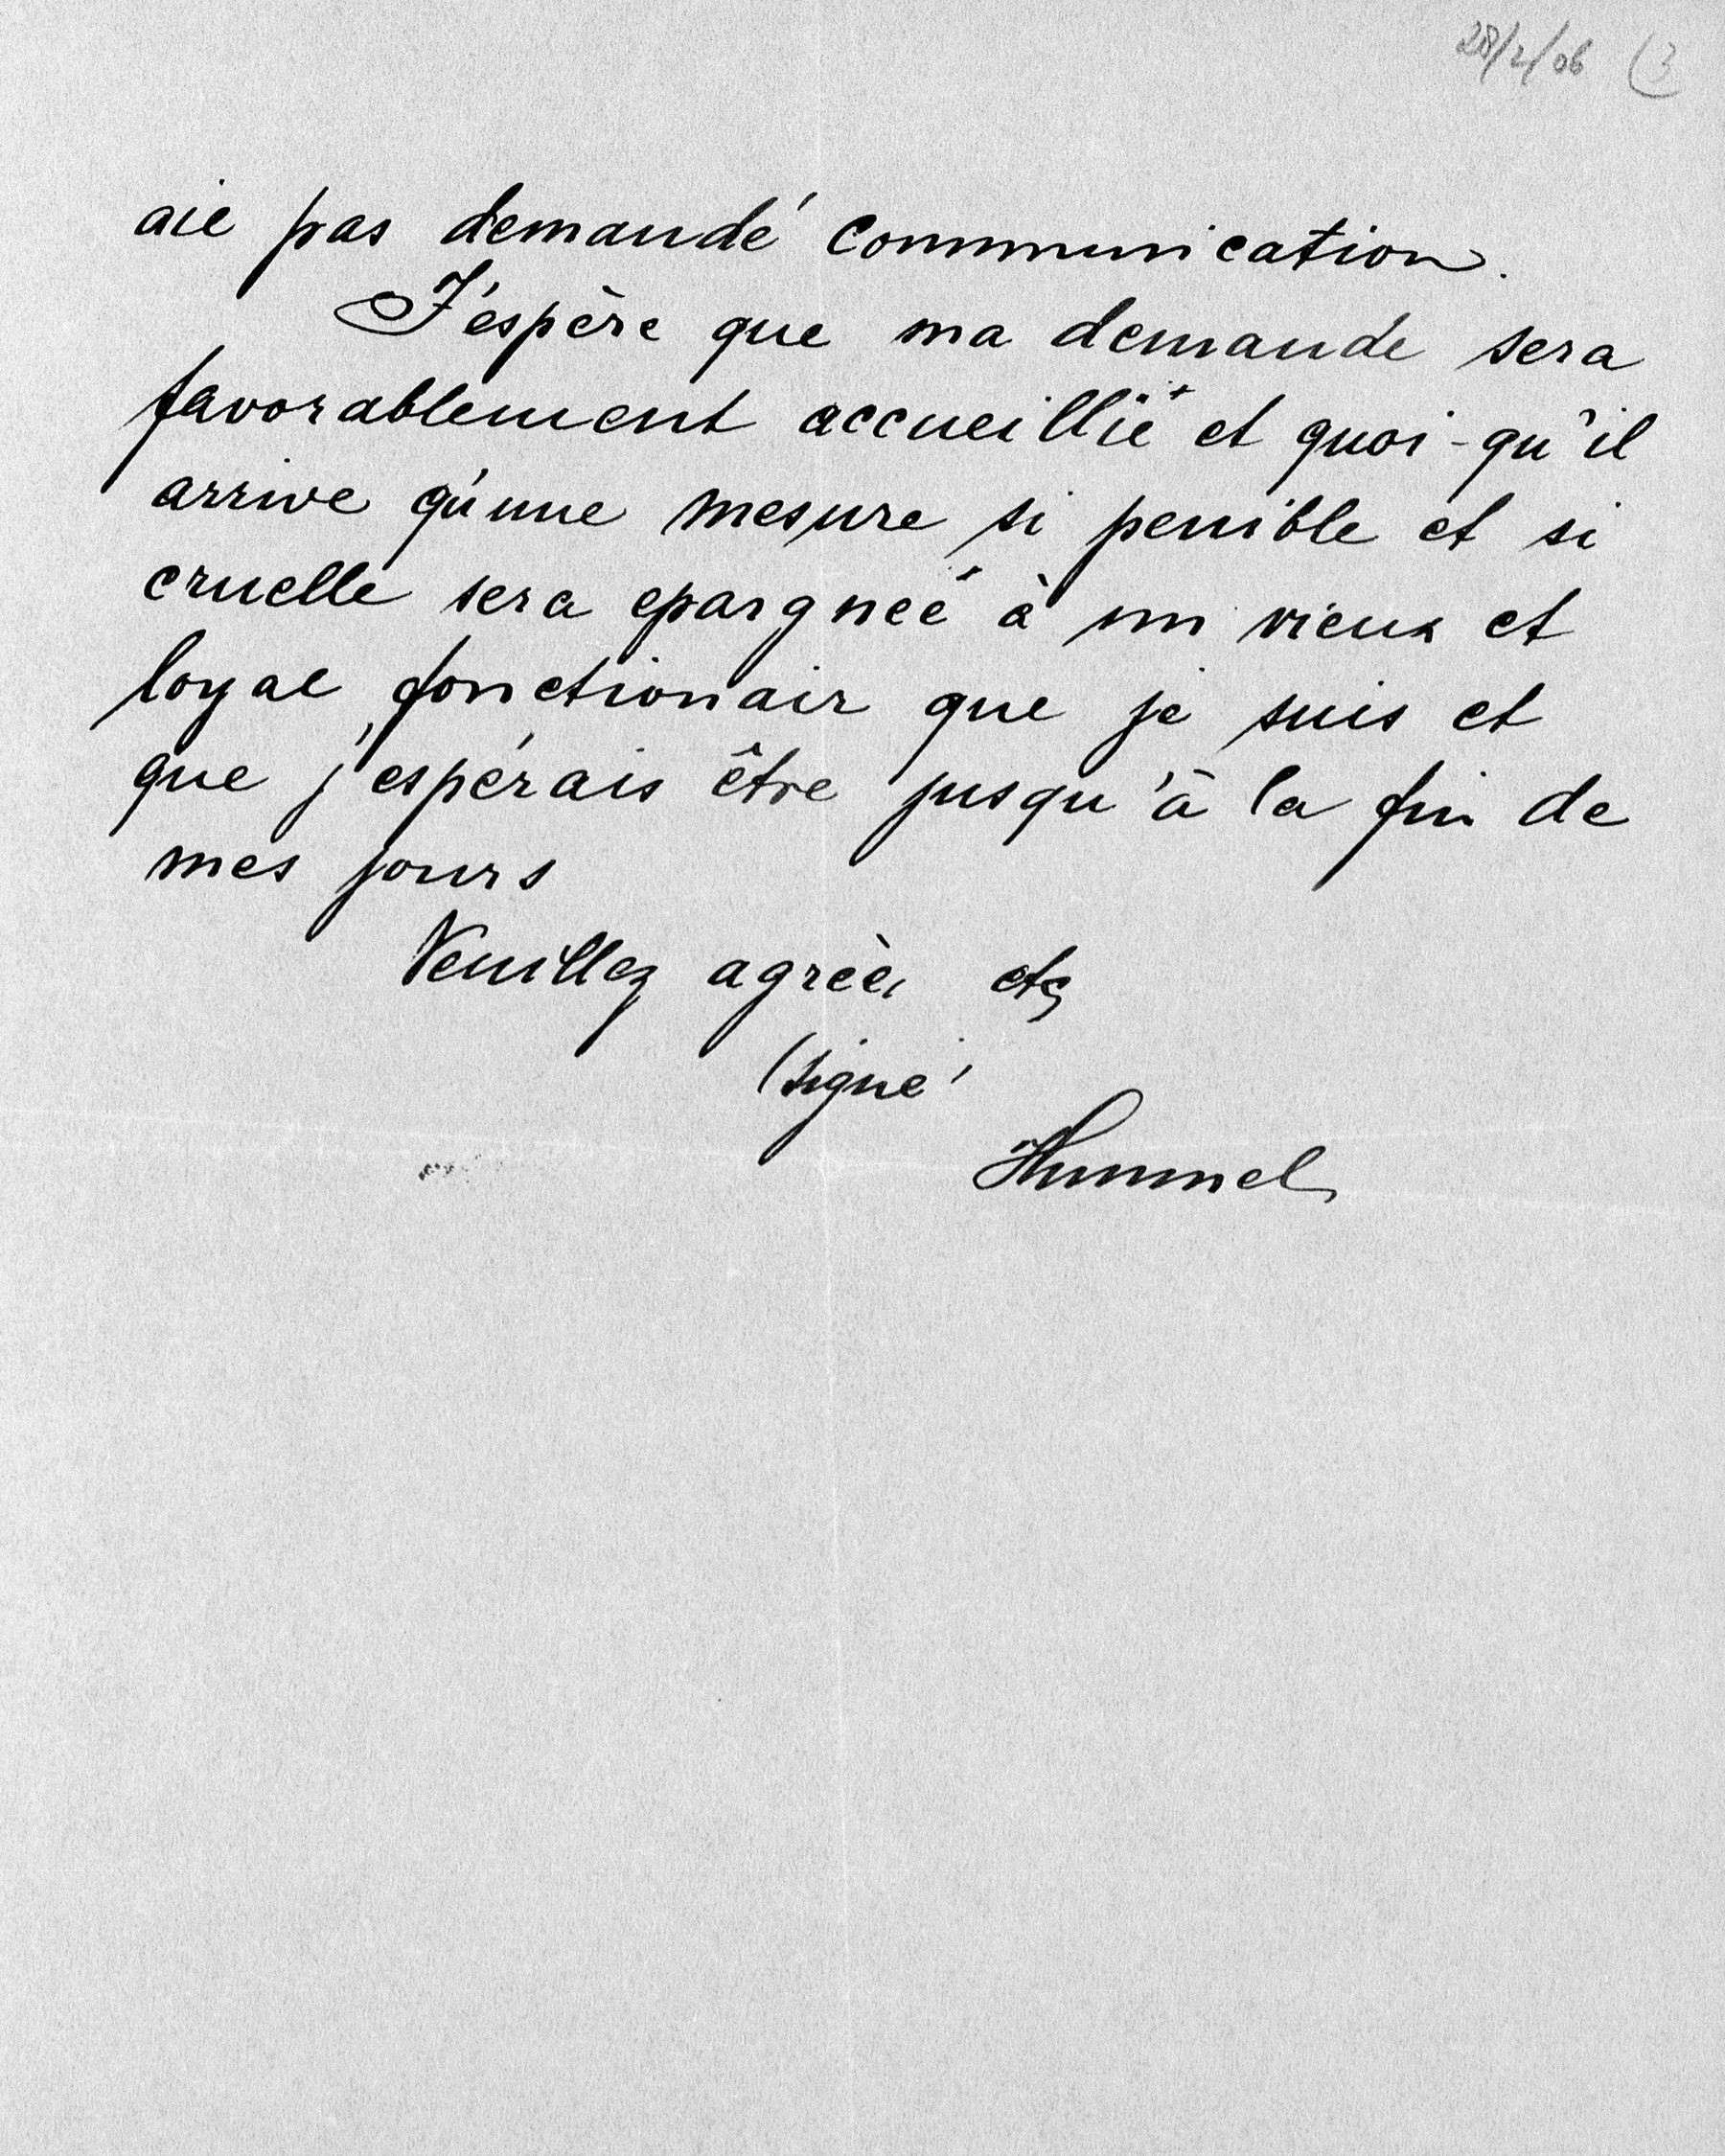 28/2/06 (3
aie pas demandé communication.
J'éspère que ma demande sera
favorablement accueillié et quoi-qu'il
arrive qu'une mesure si penible et si
cruelle sera epargneé à un vieux et
loyal fonctionair que je suis et
que j'espérais être jusqu'à la fin de
mes jours
Veuillez agréer etc
(signé
Hummel